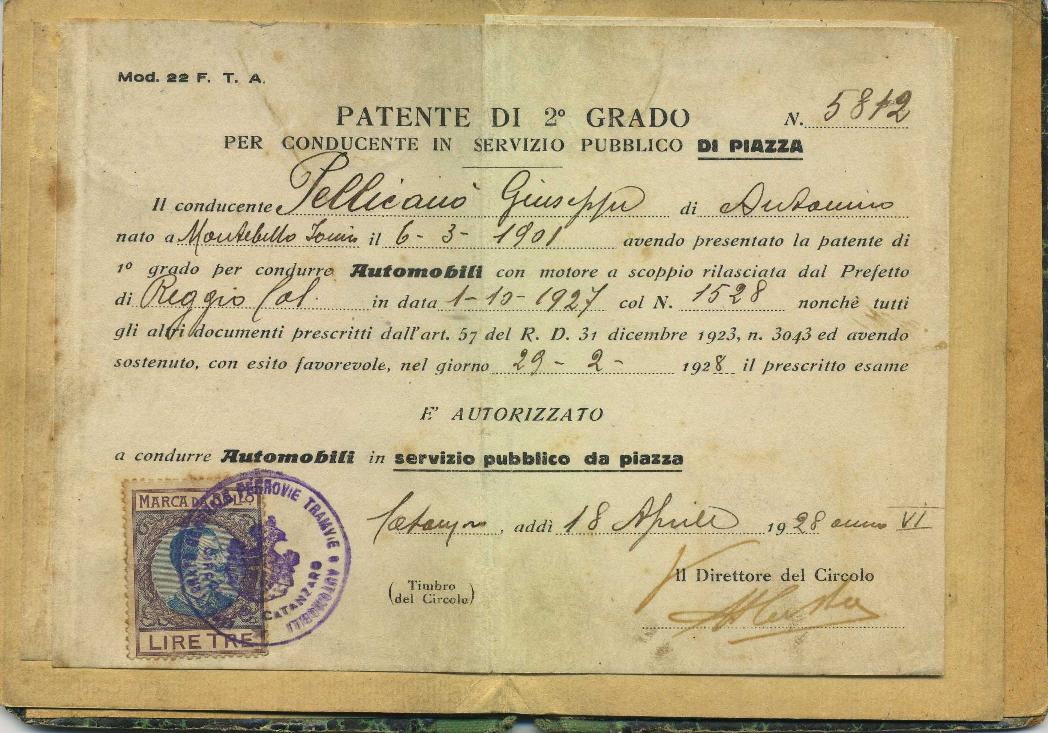 Mod. 22 F. T. A.
PATENTE DI 2º GRADO N. 5812
PER CONDUCENTE IN SERVIZIO PUBBLICO DI PIAZZA
Il conducente Pellicanò Giuseppe di Antonino
nato a Montebello Jonio il 6-3-1901 avendo presentato la patente di
1º grado per condurre Automobili con motore a scoppio rilasciata dal Prefetto
di Reggio Cal. in data 1-10-1927 col N. 1528 nonchè tutti
gli altri documenti prescritti dall'art. 57 del R. D. 31 dicembre 1923, n. 3043 ed avendo
sostenuto, con esito favorevole, nel giorno 29-2-1928 il prescritto esame
E' AUTORIZZATO
a condurre Automobili in servizio pubblico da piazza
MARCA DA BOLLO
FERROVIE TRAMVIE e AUTOMOBILI
CATANZARO
LIRE TRE
Catanzaro, addì 18 Aprile 1928 anno VI
(Timbro
del Circolo)
Il Direttore del Circolo